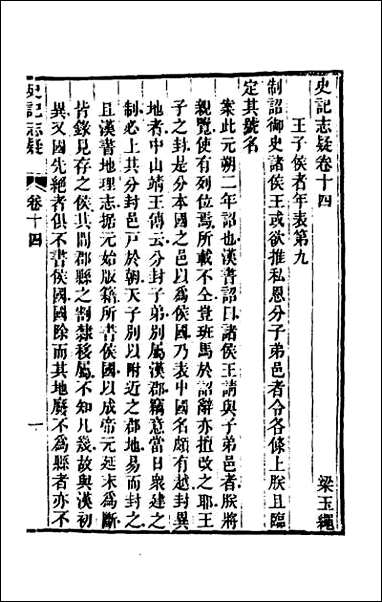 史記志疑卷十四
梁玉繩
王子侯者年表第九
制詔御史諸侯王或欲推私恩分子弟邑者令各條上朕且臨
定其號名
案此元朔二年詔也漢書詔曰諸侯王請與子弟邑者朕將
親覽使有列位焉所載不仝豈班馬於詔辭亦擅改之耶王
子之封是分本國之邑以爲侯國乃表中國名頗有越封異
地者中山靖王傳云分封子弟別屬漢郡竊意當日衆建之
制必上其分封邑戸於朝天子別以附近之郡地易而封之
且漢書地理志據元始版籍所書侯國以成帝元延末爲斷
皆錄見存之侯其間郡縣之割隸移屬不知凡幾故與漢初
異又國先絕者俱不書侯國國除而其地廢不爲縣者亦不
史記志疑
卷十四
一